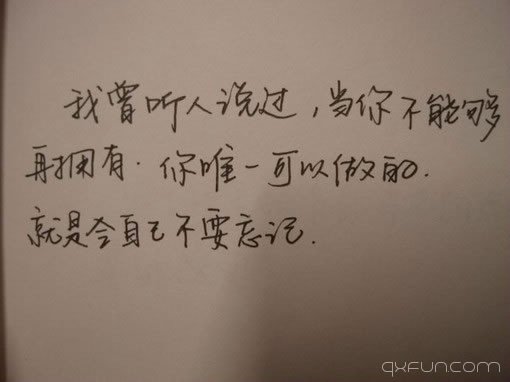 我曾听人说过，当你不能够
再拥有．你唯一可以做的．
就是令自己不要忘记．
qxfun.com